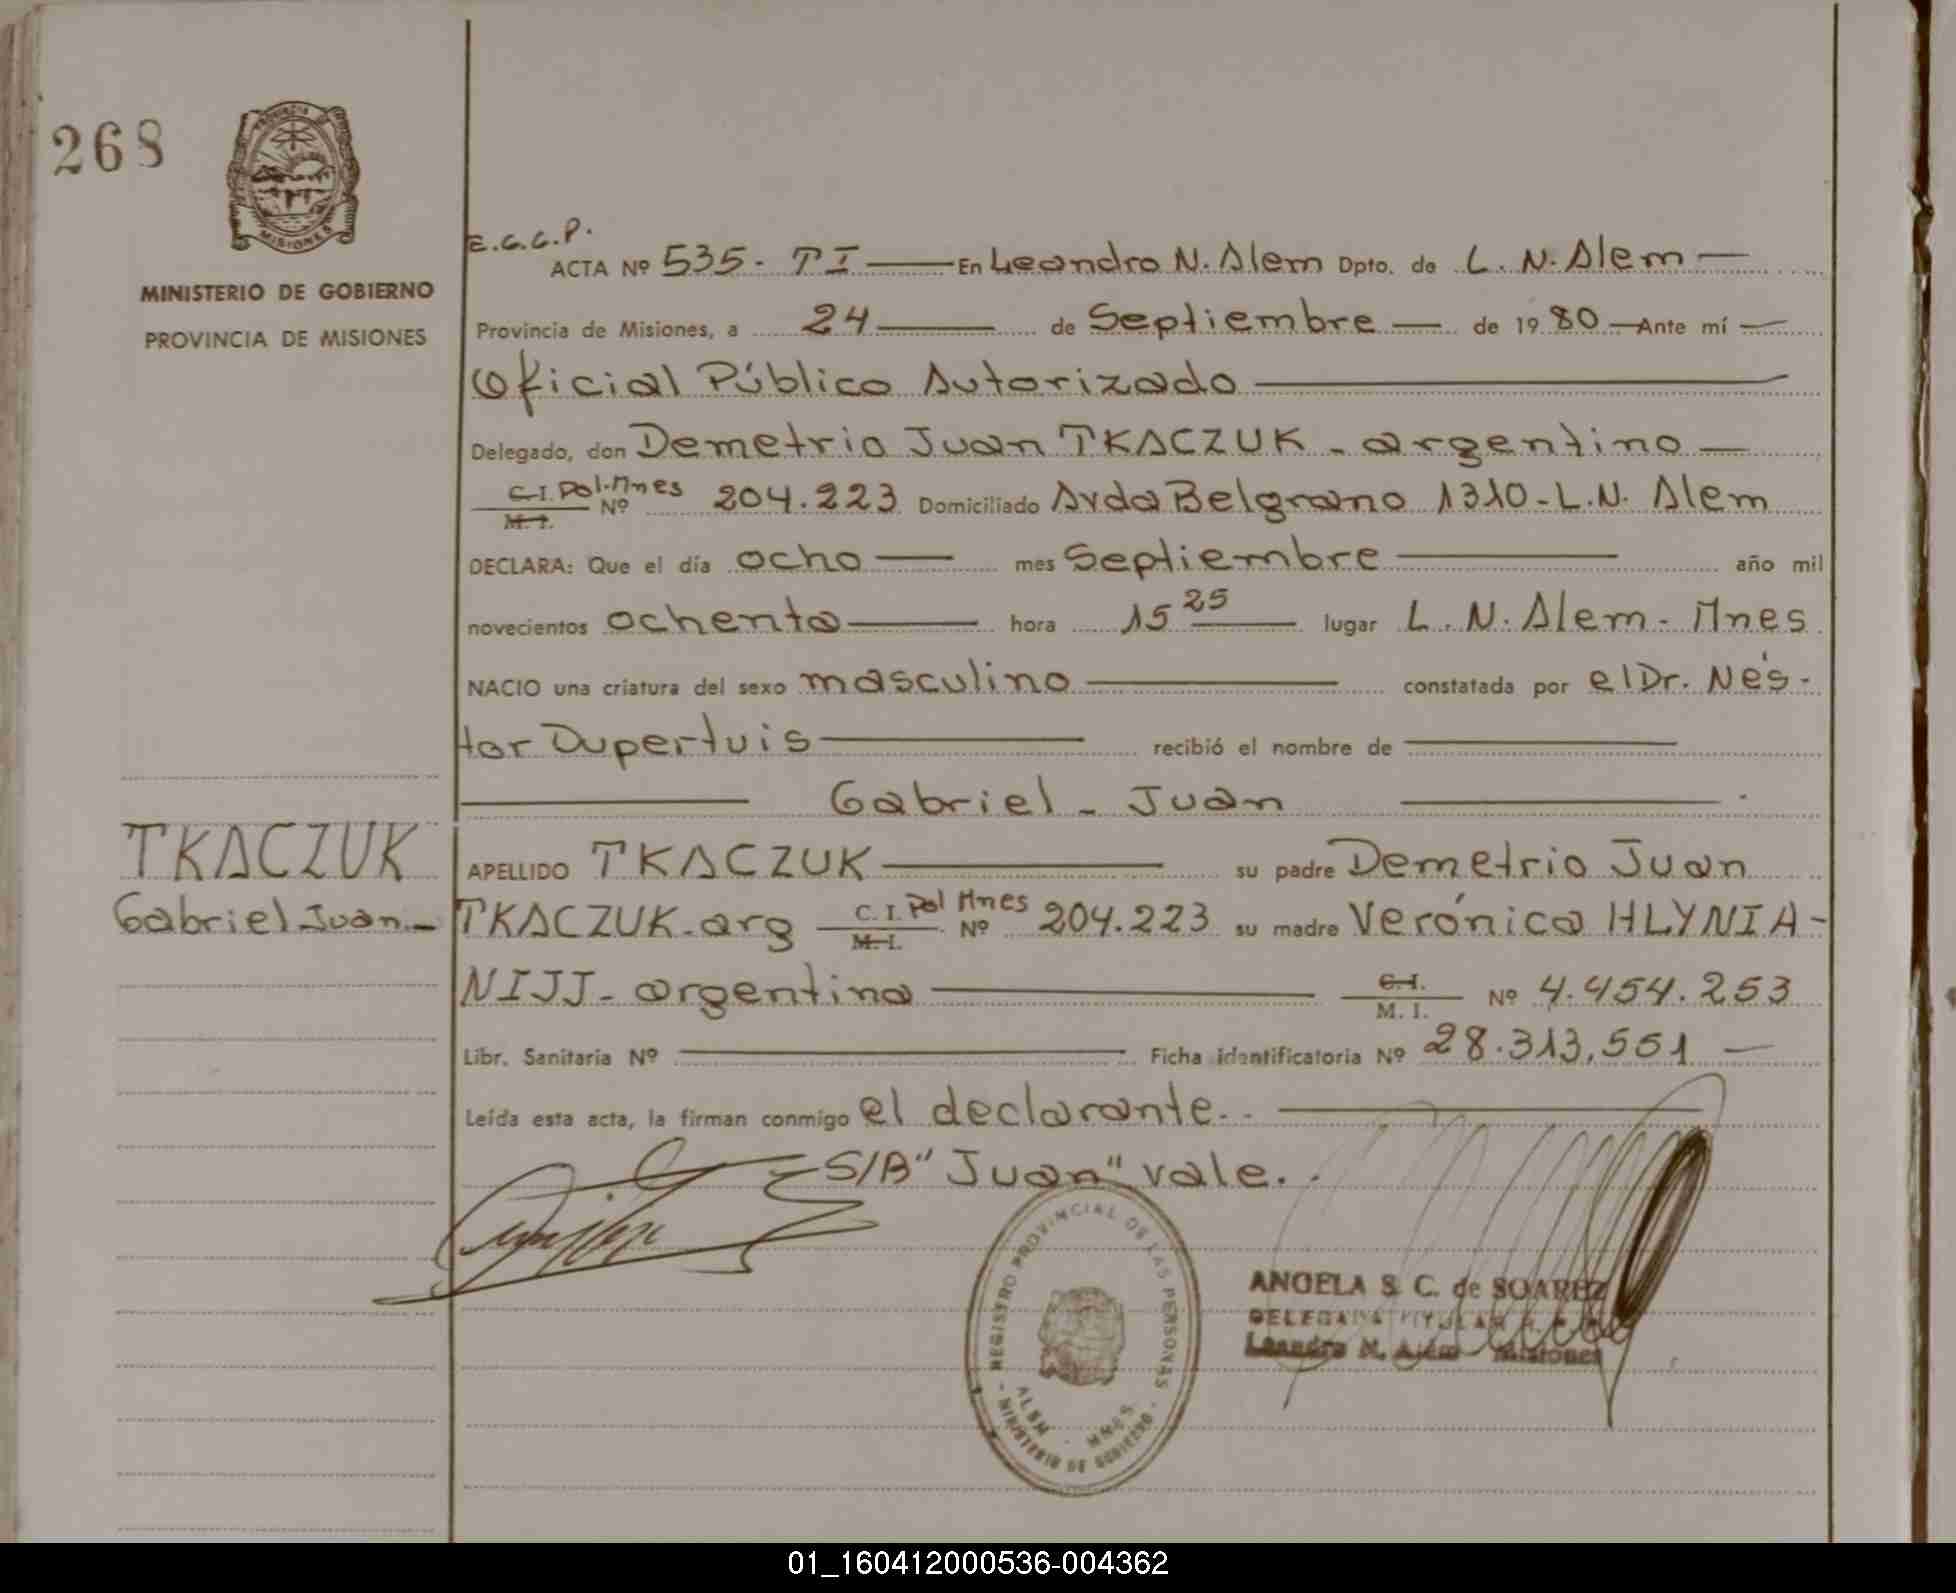 268
PROVINCIA
MISIONES
MINISTERIO DE GOBIERNO
PROVINCIA DE MISIONES
E.C.C.P.
ACTA Nº 535- TI — En Leandro N. Alem Dpto. de L. N. Alem —
Provincia de Misiones, a 24 — de Septiembre — de 1980 — Ante mí —
Oficial Público Autorizado —
Delegado, don Demetrio Juan TKACZUK - argentino —
C.I. Pol. Mnes
M. I. Nº 204.223 Domiciliado Avda Belgrano 1310 - L.N. Alem
DECLARA: Que el día ocho — mes Septiembre — año mil
novecientos ochenta — hora 15 25 — lugar L. N. Alem - Mnes
NACIO una criatura del sexo masculino — constatada por el Dr. Nés-
tor Dupertuis — recibió el nombre de —
— Gabriel - Juan —
TKACZUK
Gabriel Juan.-
APELLIDO TKACZUK — su padre Demetrio Juan
TKACZUK - arg C. I. Pol Mnes M. I. Nº 204.223 su madre Verónica HLYNIA-
NIJJ - argentina — C.I. M. I. Nº 4.454.253
Libr. Sanitaria Nº — Ficha identificatoria Nº 28.313.551 —
Leída esta acta, la firman conmigo el declarante.. —
— S/B "Juan" vale..
REGISTRO PROVINCIAL DE LAS PERSONAS
ALEM - MNES
MINISTERIO DE GOBIERNO
ANGELA S. C. de SOAREZ
DELEGADA TITULAR
Leandro N. Alem Misiones
01_160412000536-004362